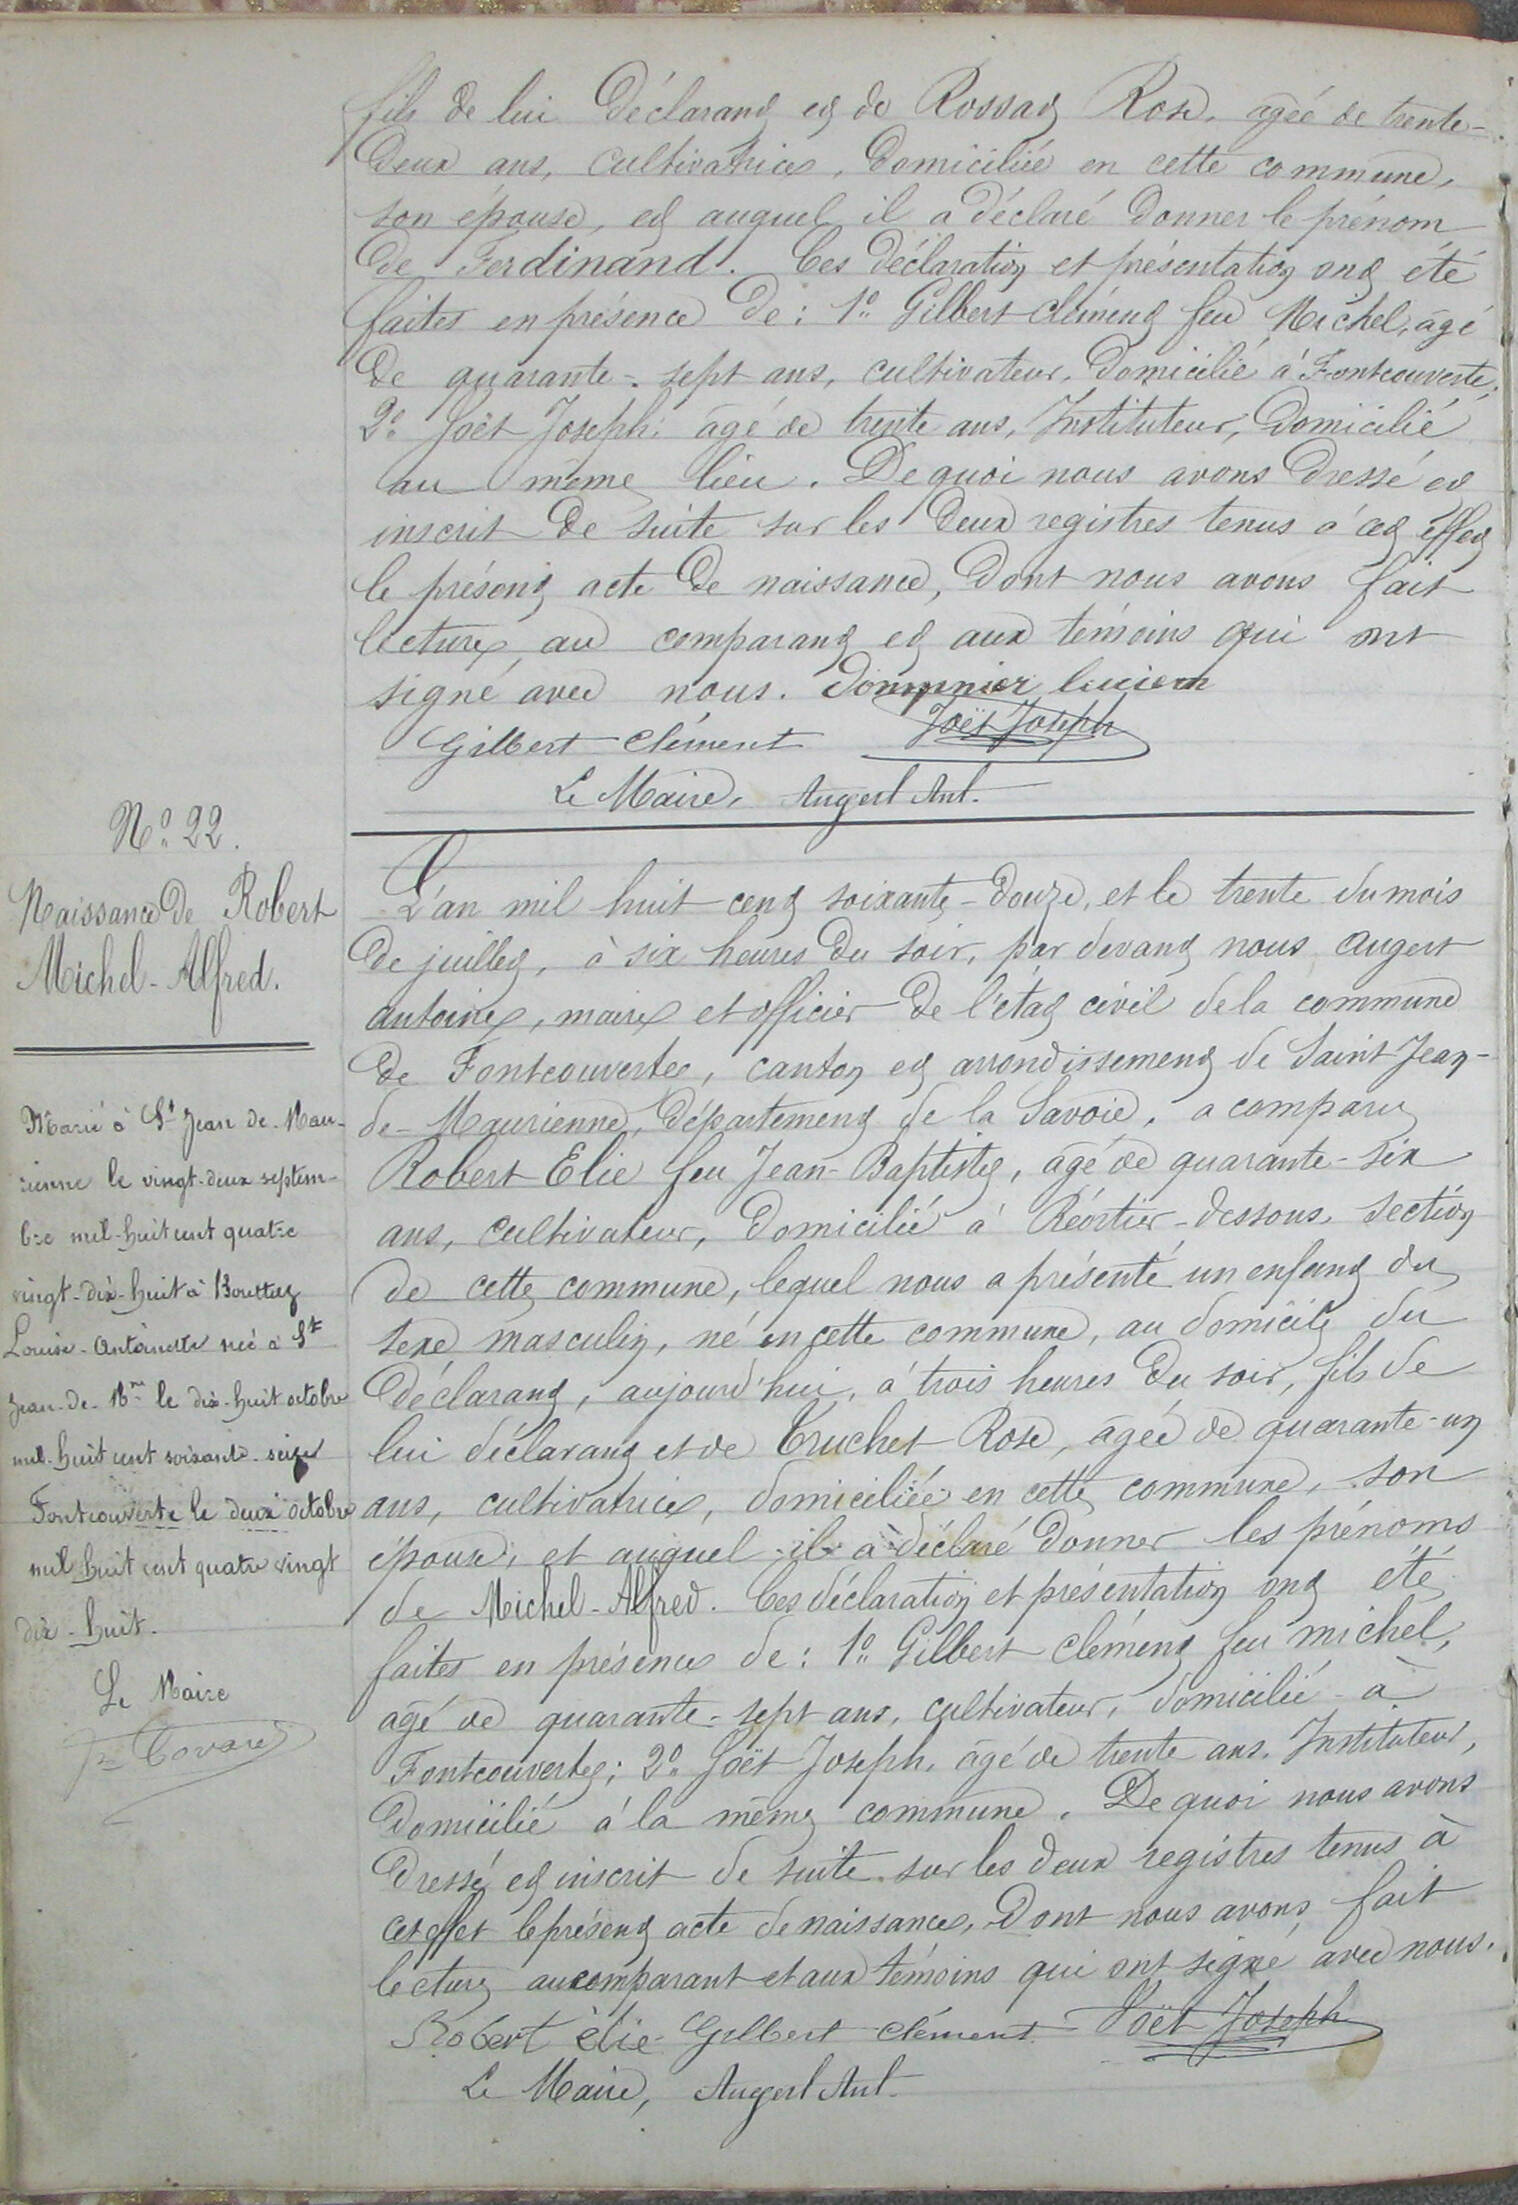 fils de lui déclarant et de Rossat Rose, agée de trente-
deux ans, cultivatrice, domiciliée en cette commune,
son épouse, et auquel il a déclaré donner le prénom
de Ferdinand. Ces déclaration et présentation ont été
faites en présence de : 1° Gilbert Clément feu Michel, âgé
de quarante-sept ans, cultivateur, domicilié à Fontcouverte;
2° Joët Joseph. âgé de trente ans, Instituteur, domicilié
au même lieu. De quoi nous avons dressé et
inscrit de suite sur les deux registres tenus à cet effet
le présent acte de naissance, dont nous avons fait
lecture, au comparant et aux témoins qui ont
signé avec nous. Dompnier lucien
Gilbert Clément Joët Joseph
Le Maire, Augert Ant.
N° 22.
Naissance de Robert
Michel-Alfred.
L'an mil huit cent soixante-douze, et le trente du mois
de juillet, à six heures du soir, par devant nous Augert
antoine, maire et officier de l'état civil de la commune
de Fontcouverte, canton et arrondissement de Saint Jean-
de-Maurienne, département de la Savoie, a comparu
Robert Elie feu Jean-Baptiste, âgé de quarante-six
ans, cultivateur, domicilié à Réortier-dessous, section
de cette commune, lequel nous a présenté un enfant du
sexe masculin, né en cette commune, au domicile du
déclarant, aujourd'hui, à trois heures du soir, fils de
lui déclarant et de Truchet Rose, âgée de quarante-un
ans, cultivatrice, domiciliée en cette commune, son
épouse, et auquel il a déclaré donner les prénoms
de Michel-Alfred. Ces déclaration et présentation ont été
faites en présence de : 1° Gilbert Clément feu michel,
âgé de quarante-sept ans, cultivateur, domicilié à
Fontcouverte; 2° Joët Joseph, âgé de trente ans, Instituteur,
domicilié à la même commune. De quoi nous avons
dressé et inscrit de suite sur les deux registres tenus à
cet effet le présent acte de naissance, dont nous avons fait
lecture au comparant et aux témoins qui ont signé avec nous.
Robert élie Gilbert Clément Joët Joseph
Le Maire, Augert Ant.
Marié à St Jean de-Mau-
rienne le vingt-deux septem-
bre mil-huit cent quatre
vingt-dix-huit à
Louise-Antoinette née à St
Jean-de-Mne le dix-huit octobre
mil-huit cent soixante-seize
Fontcouverte le deux octobre
mil huit cent quatre vingt
dix-huit.
Le Maire